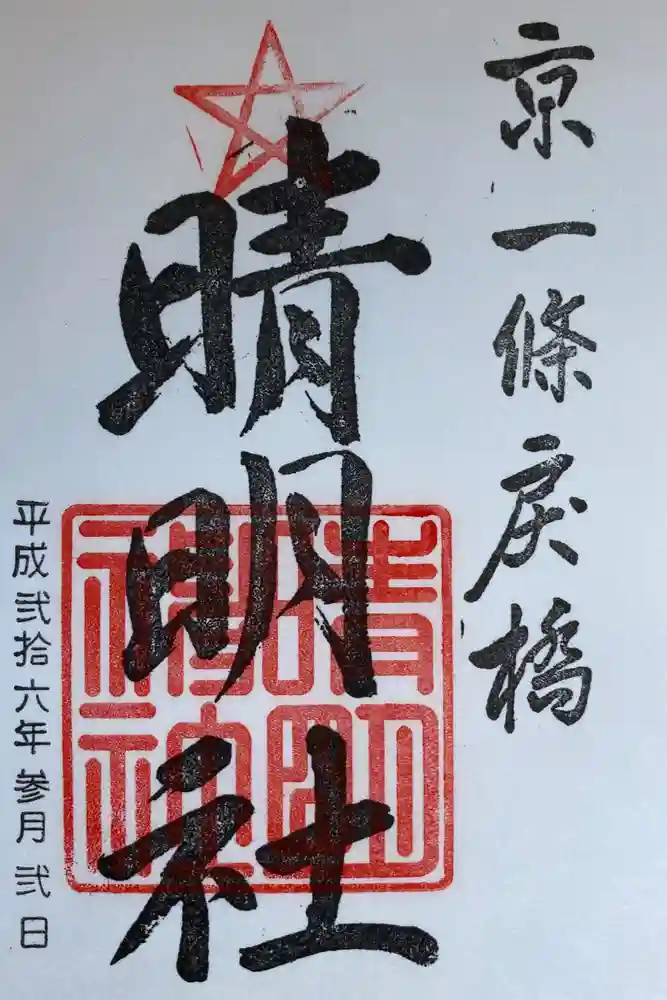 京一條戻橋
晴明社
平成弐拾六年参月弐日